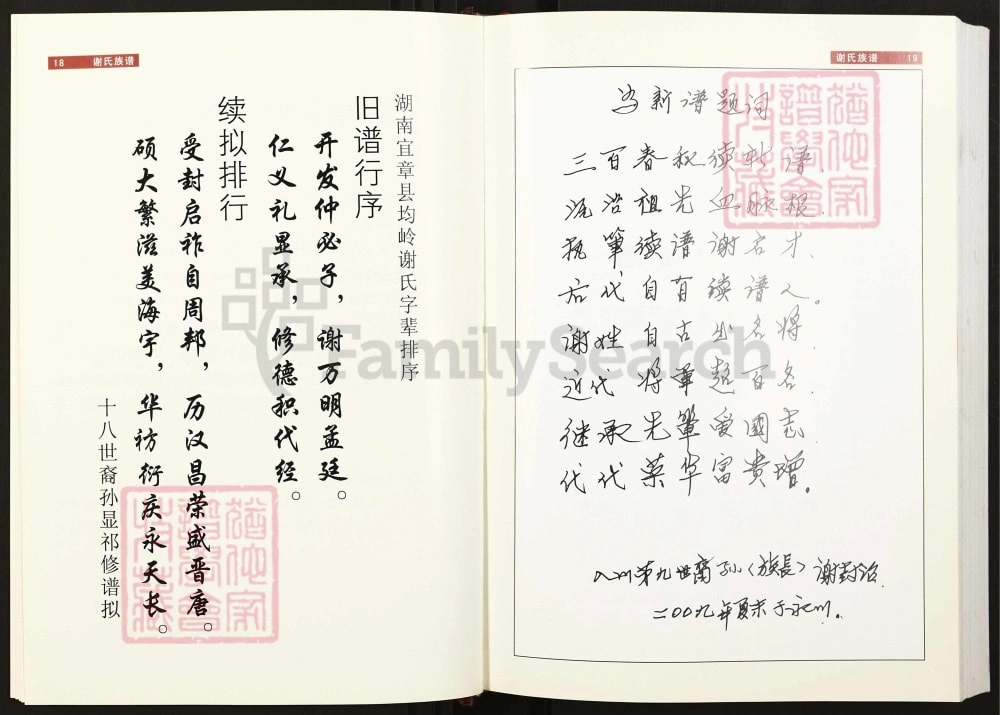 18 谢氏族谱
湖南宜章县均岭谢氏字辈排序
旧谱行序
开发仲必子，谢万明孟廷。
仁义礼显承，修德积代经。
续拟排行
受封启祚自周邦，历汉昌荣盛晋唐。
硕大繁滋美海宇，华祊衍庆永天长。
十八世裔孙显祁修谱拟
谢氏族谱 19
为新谱题词
三百春秋续新谱
流淌祖先血脉根
执筆续谱谢名才
后代自有续谱人。
谢姓自古出名将
近代将軍超百名
继承先輩爱國志
代代荣华富貴增。
入川第九世裔孙〈族長〉谢封
二00九年夏末于永川。
FamilySearch